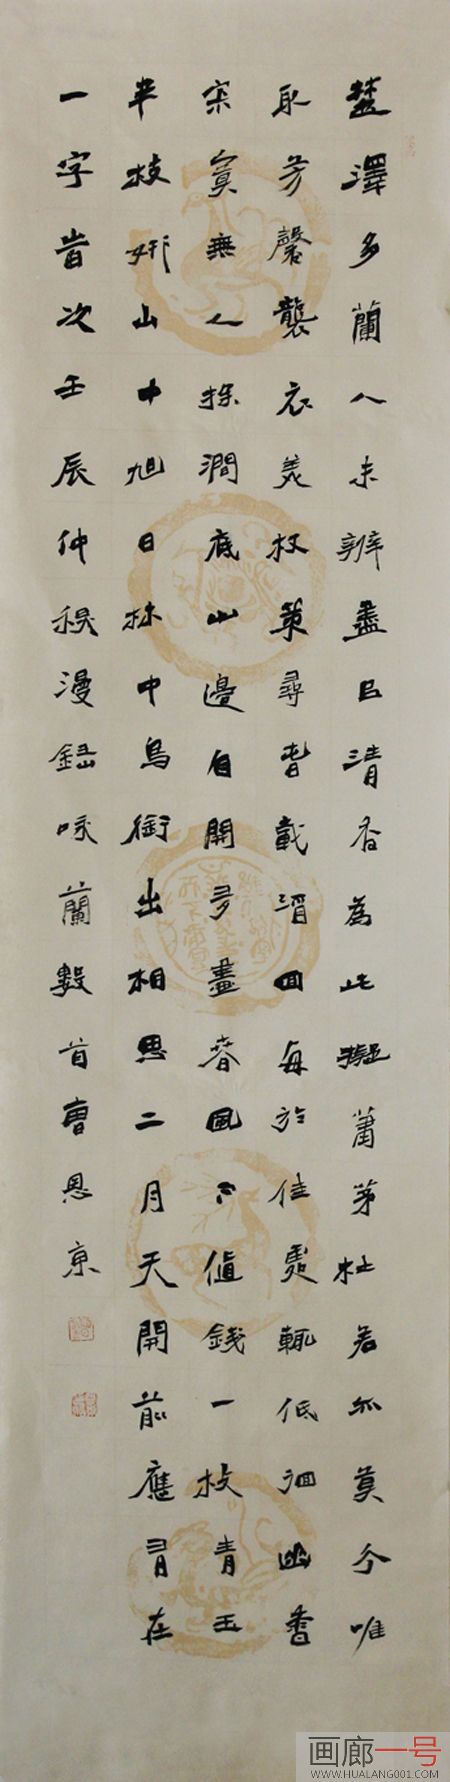 楚澤多蘭人未辨盡㠯清香為比擬蕭茅杜若亦莫分唯
取芳馨襲衣美杖策尋旹載酒回每於佳處輒低徊幽香
寂寞無人採澗底山邊自開多盡春風不值錢一枝青玉
半枝妍山中旭日林中鳥銜出相思二月天開前應在
一字旹次壬辰仲秋漫錄咏蘭數首曹恩東
画廊一号
WWW.HUALANG001.COM